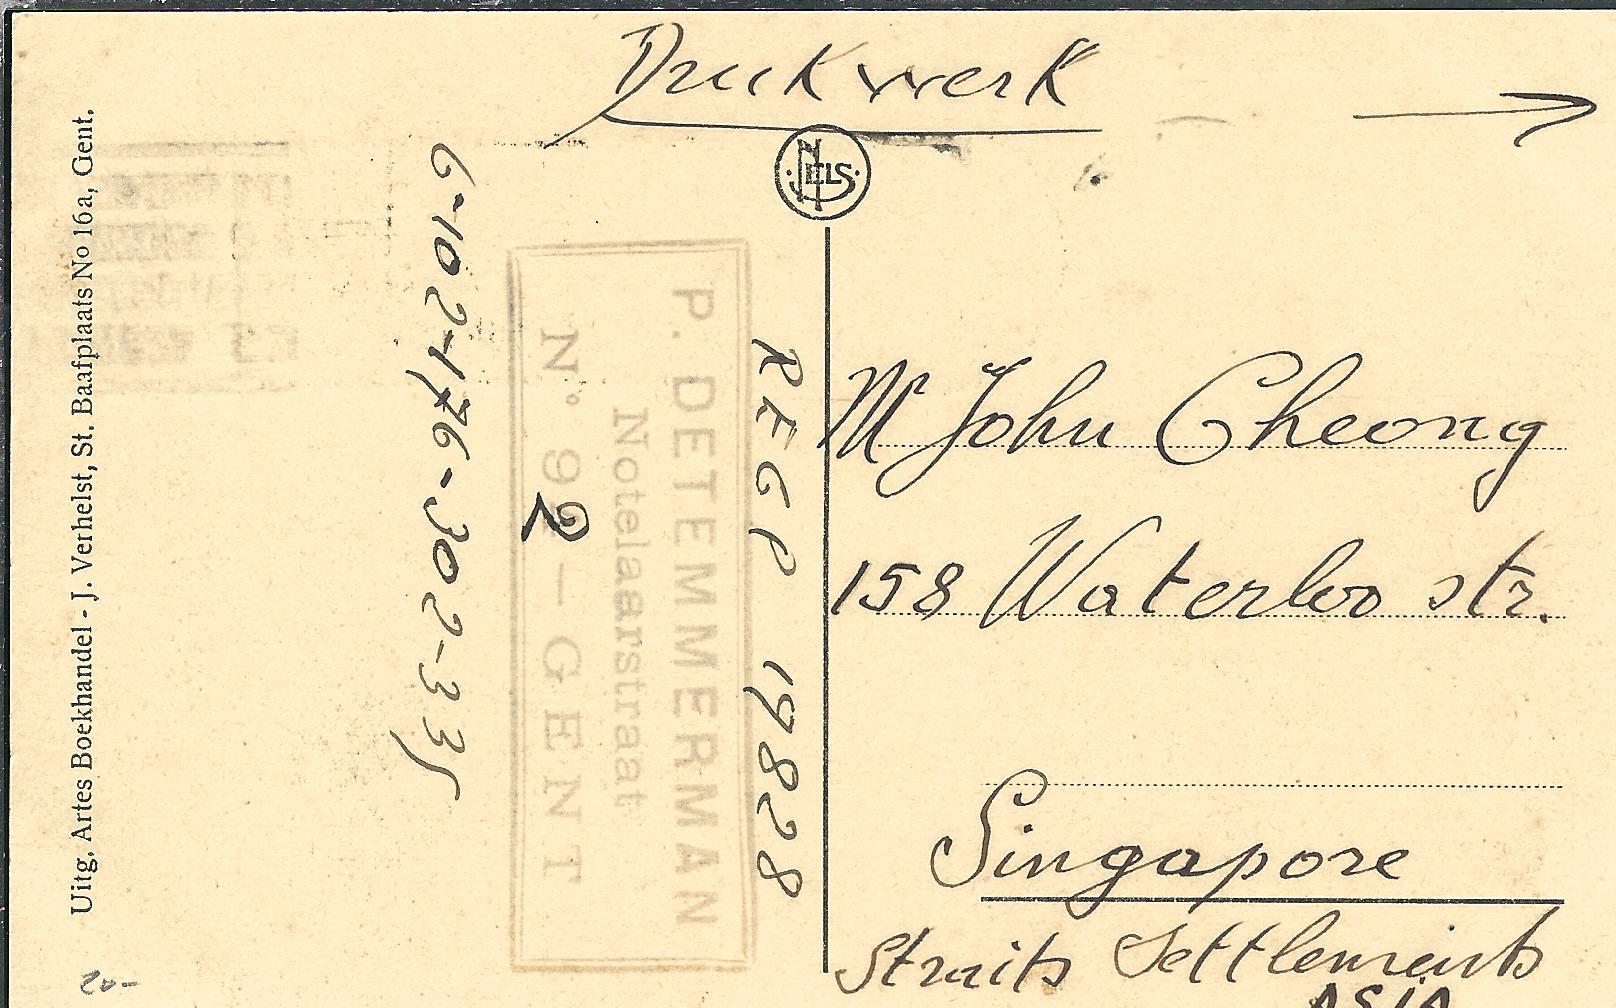 Drukwerk
NELS
Uitg. Artes Boekhandel - J. Verhelst, St. Baafplaats No 16a, Gent.
6-102-176-302-335
P. DETEMMERMAN
Notelaarstraat
N° 92 — GENT
REGP 19828
M John Cheong
158 Waterloo str.
Singapore
Straits Settlements
ASIA